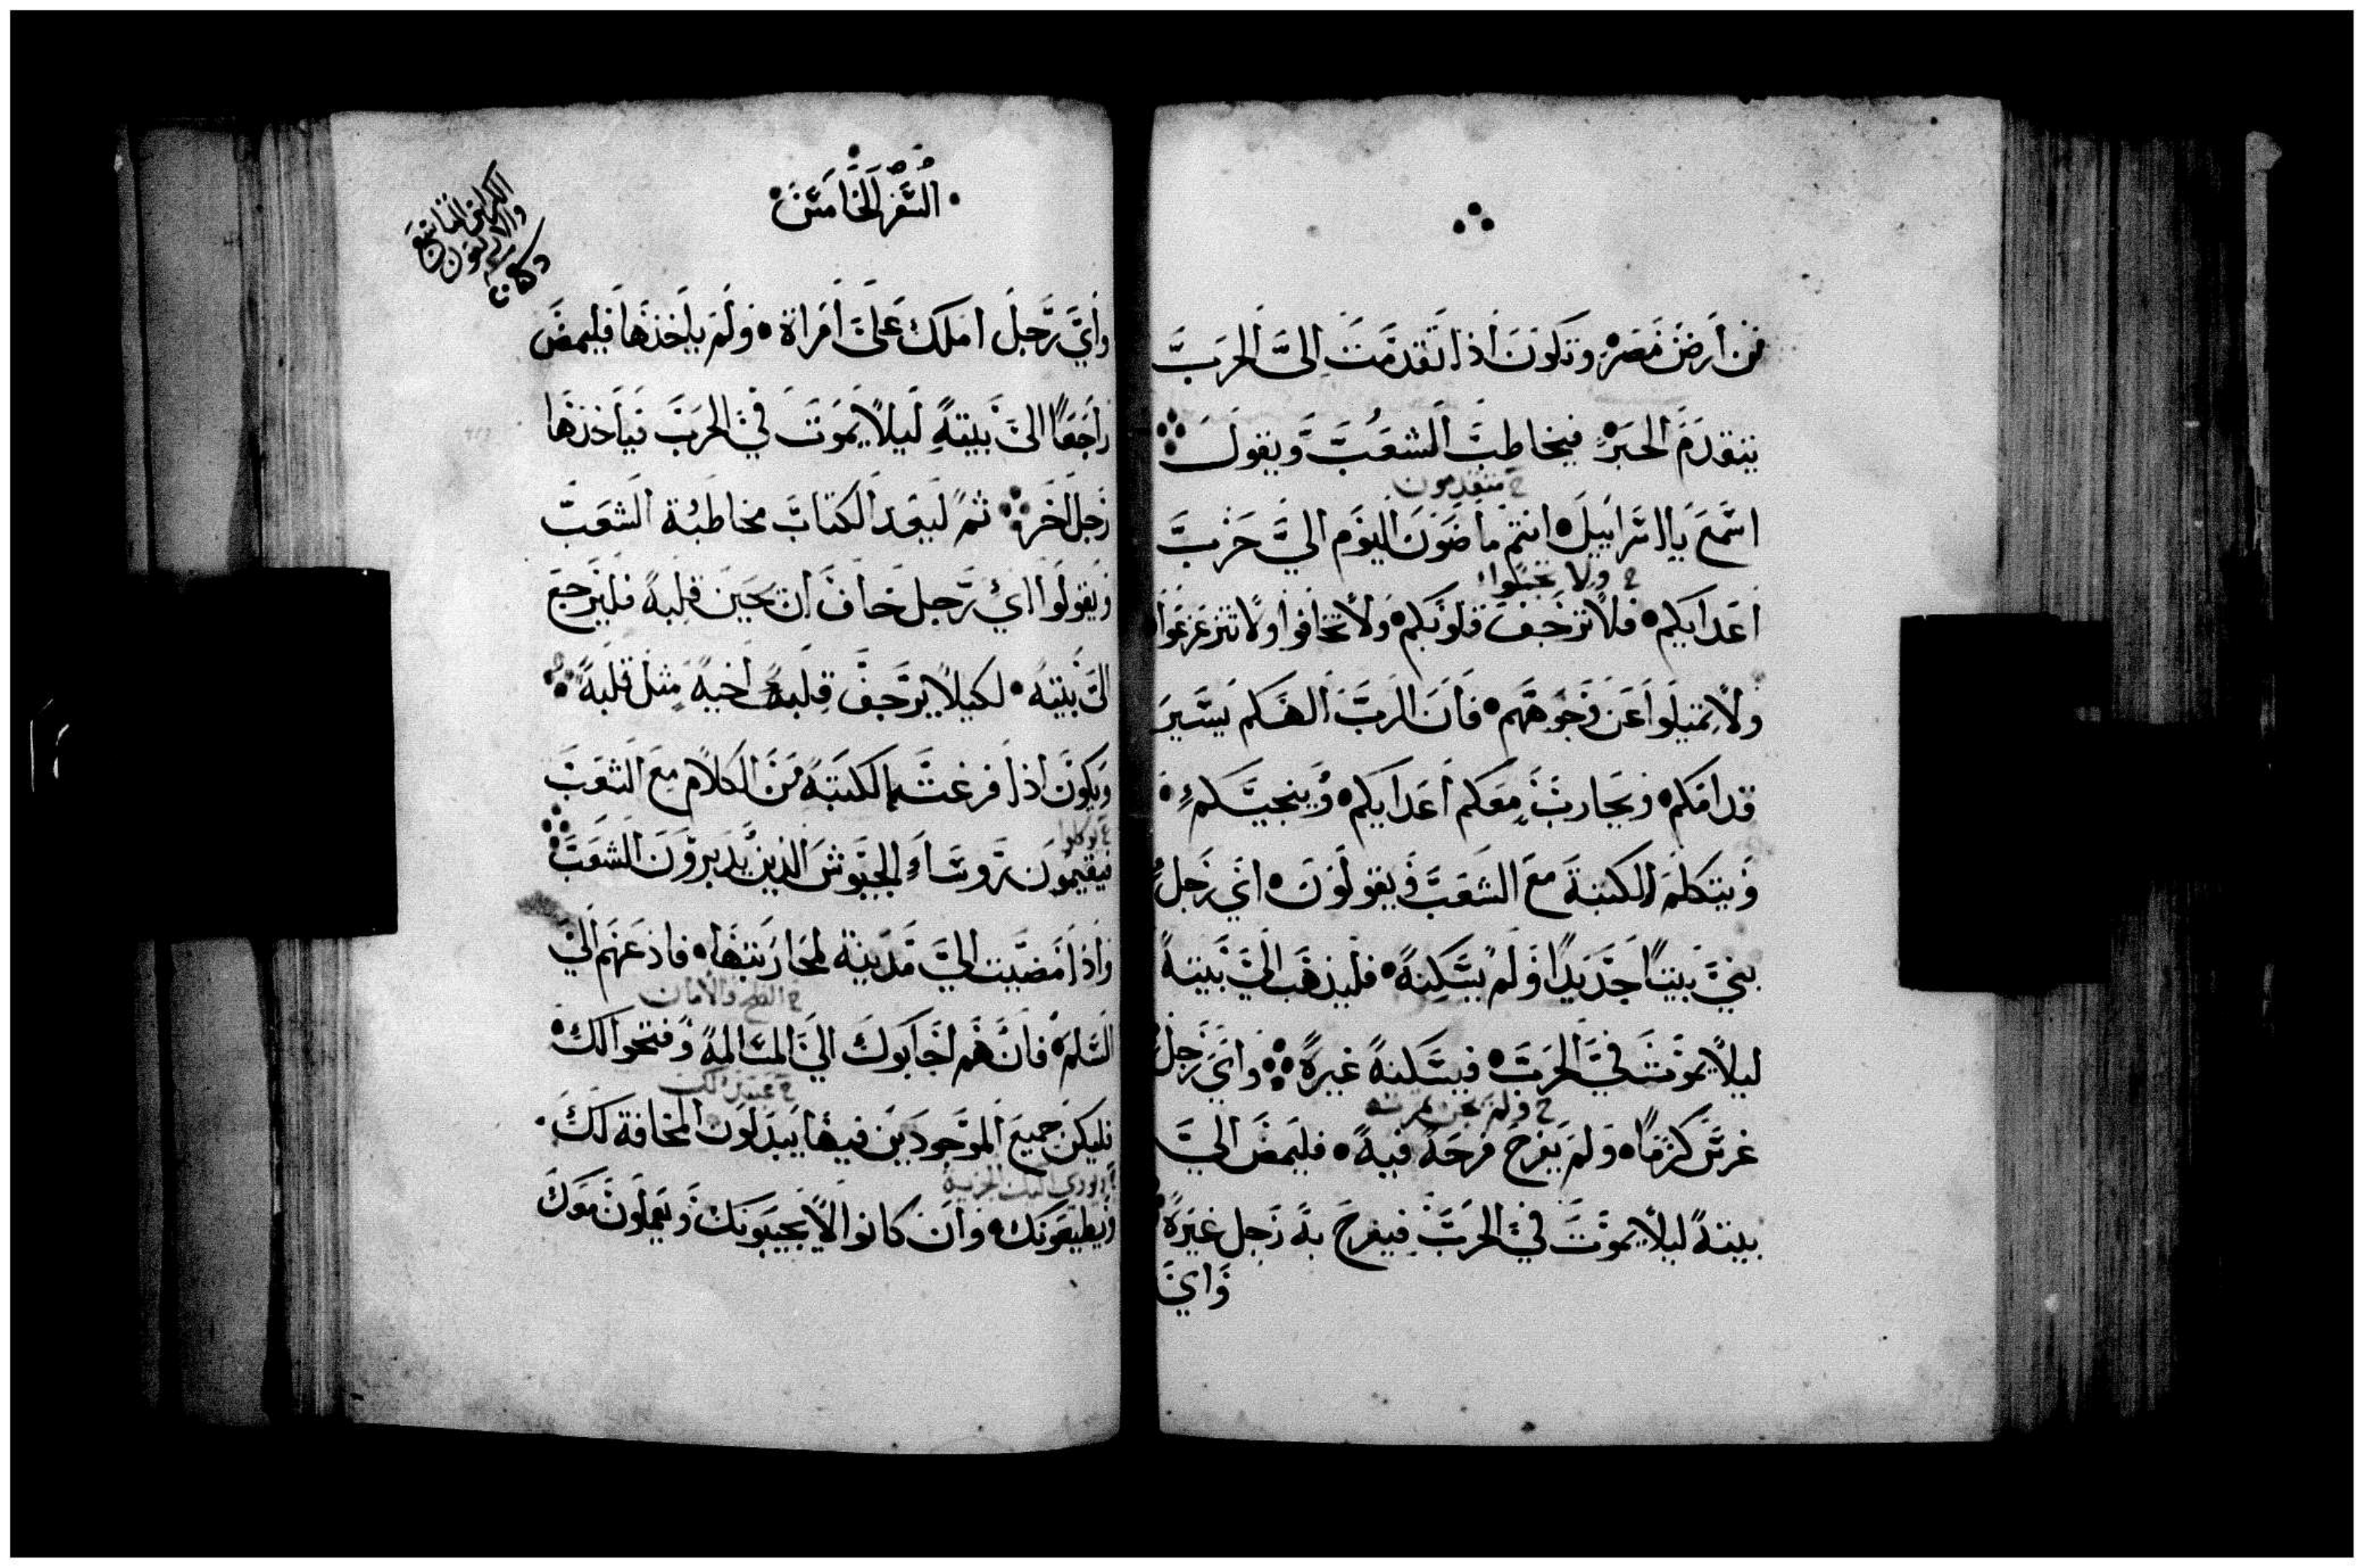 من ارض مصر وتكون اذا تقدمت الى الحرب
يتقدم الحبر فيخاطب الشعب ويقول
خ متقدمون
اسمع يا اسراييل انتم ماضون اليوم الي حرب
خ ولا تخبلوا
اعدايكم فلا ترجف قلوبكم ولا تخافوا ولا تتزعزعوا
ولا تميلوا عن وجوههم فان الرب الهكم يسير
قدامكم ويحارب معكم اعدايكم وينجيكم
ويتكلم الكتبة مع الشعب ويقولون اي رجل
بني بيتا جديدا ولم يسكنه فليذهب الي بيته
ليلا يموت في الحرب فيسكنه غيره واي رجل
خ ولم يجن
غرس كرما ولم يفرح فرحه فيه فليمض الي
بيته ليلا يموت في الحرب فيفرح به رجل غيره
واي
السفر الخامس
الكراس التاسع
واي رجل املك على امراة ولم ياخذها فليمض
راجعا الى بيته ليلا يموت في الحرب فياخذها
رجل اخر ثم ليعد الكتاب مخاطبة الشعب
ويقولوا اي رجل خاف ان يحين قلبه فليرجع
الى بيته لكيلا يرجف قلب اخيه مثل قلبه
ويكون اذا فرغت الكتبة من الكلام مع الشعب
خ يوكلوا
فيقيمون روساء الجيوش الذين يدبرون الشعب
واذا مضيت الي مدينة لمحاربتها فادعهم الي
خ الصلح والامان
السلم فان هم اجابوك الي المسالمة وفتحوا لك
فليكن جميع الموجودين فيها يبدلون المخافة لك
الجزية
ويطيعونك وان كانوا لا يجيبونك ويعملون معك